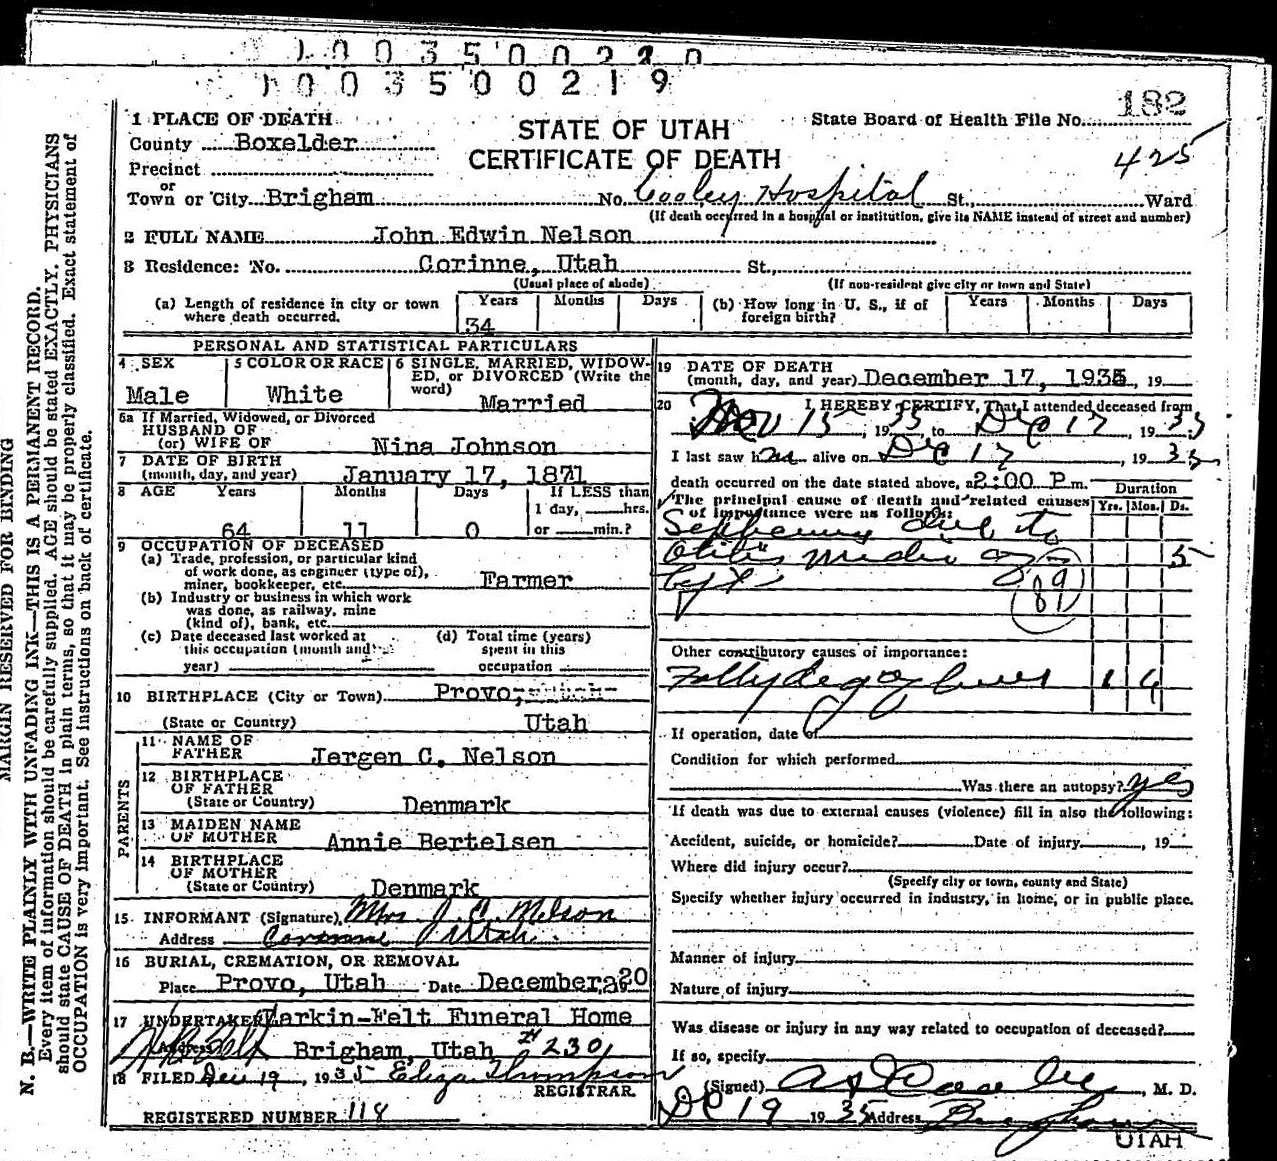 1 0 0 3 5 0 0 2 2 0
1 0 0 3 5 0 0 2 1 9
182
1 PLACE OF DEATH
STATE OF UTAH
State Board of Health File No.
County Boxelder
CERTIFICATE OF DEATH
425
Precinct
or
Town or City Brigham No. Cooley Hospital St., Ward
(If death occurred in a hospital or institution, give its NAME instead of street and number)
2 FULL NAME John Edwin Nelson
3 Residence: No. Corinne, Utah St.,
(Usual place of abode) (If non-resident give city or town and State)
(a) Length of residence in city or town where death occurred. Years 34 Months Days
(b) How long in U. S., if of foreign birth? Years Months Days
PERSONAL AND STATISTICAL PARTICULARS
4 SEX
Male
5 COLOR OR RACE
White
6 SINGLE, MARRIED, WIDOW-
ED, or DIVORCED (Write the
word)
Married
6a If Married, Widowed, or Divorced
HUSBAND OF
(or) WIFE OF Nina Johnson
7 DATE OF BIRTH
(month, day, and year) January 17, 1871
8 AGE Years Months Days If LESS than
1 day, hrs.
64 11 0 or min.?
9 OCCUPATION OF DECEASED
(a) Trade, profession, or particular kind
of work done, as engineer (type of),
miner, bookkeeper, etc. Farmer
(b) Industry or business in which work
was done, as railway, mine
(kind of), bank, etc.
(c) Date deceased last worked at
this occupation (month and
year)
(d) Total time (years)
spent in this
occupation
10 BIRTHPLACE (City or Town) Provo,
(State or Country) Utah
PARENTS
11 NAME OF
FATHER Jergen C. Nelson
12 BIRTHPLACE
OF FATHER
(State or Country) Denmark
13 MAIDEN NAME
OF MOTHER Annie Bertelsen
14 BIRTHPLACE
OF MOTHER
(State or Country) Denmark
15 INFORMANT (Signature) Mrs J. E. Nelson
Address Corinne Utah
16 BURIAL, CREMATION, OR REMOVAL
Place Provo, Utah Date December 20
17 UNDERTAKER Larkin-Felt Funeral Home
Address Brigham, Utah # 230
18 FILED Dec 19, 1935 Eliza Thompson
REGISTRAR
REGISTERED NUMBER 118
19 DATE OF DEATH
(month, day, and year) December 17, 1935, 19
20 I HEREBY CERTIFY, That I attended deceased from
Nov 15, 1935 to Dec 17, 1935
I last saw h alive on Dec 17, 1935
death occurred on the date stated above, a 2:00 P.m.
Duration
The principal cause of death and related causes
of importance were as follows:
Yrs. Mos. Ds.
due to
Otitis media 5
89
Other contributory causes of importance:
1 4
If operation, date of
Condition for which performed
Was there an autopsy? yes
If death was due to external causes (violence) fill in also the following:
Accident, suicide, or homicide? Date of injury, 19
Where did injury occur?
(Specify city or town, county and State)
Specify whether injury occurred in industry, in home, or in public place.
Manner of injury
Nature of injury
Was disease or injury in any way related to occupation of deceased?
If so, specify
(Signed), M. D.
Dec 19 1935 Address Brigham
UTAH
MARGIN RESERVED FOR BINDING
N. B.—WRITE PLAINLY WITH UNFADING INK—THIS IS A PERMANENT RECORD.
Every item of information should be carefully supplied. AGE should be stated EXACTLY. PHYSICIANS
should state CAUSE OF DEATH in plain terms, so that it may be properly classified. Exact statement of
OCCUPATION is very important. See instructions on back of certificate.